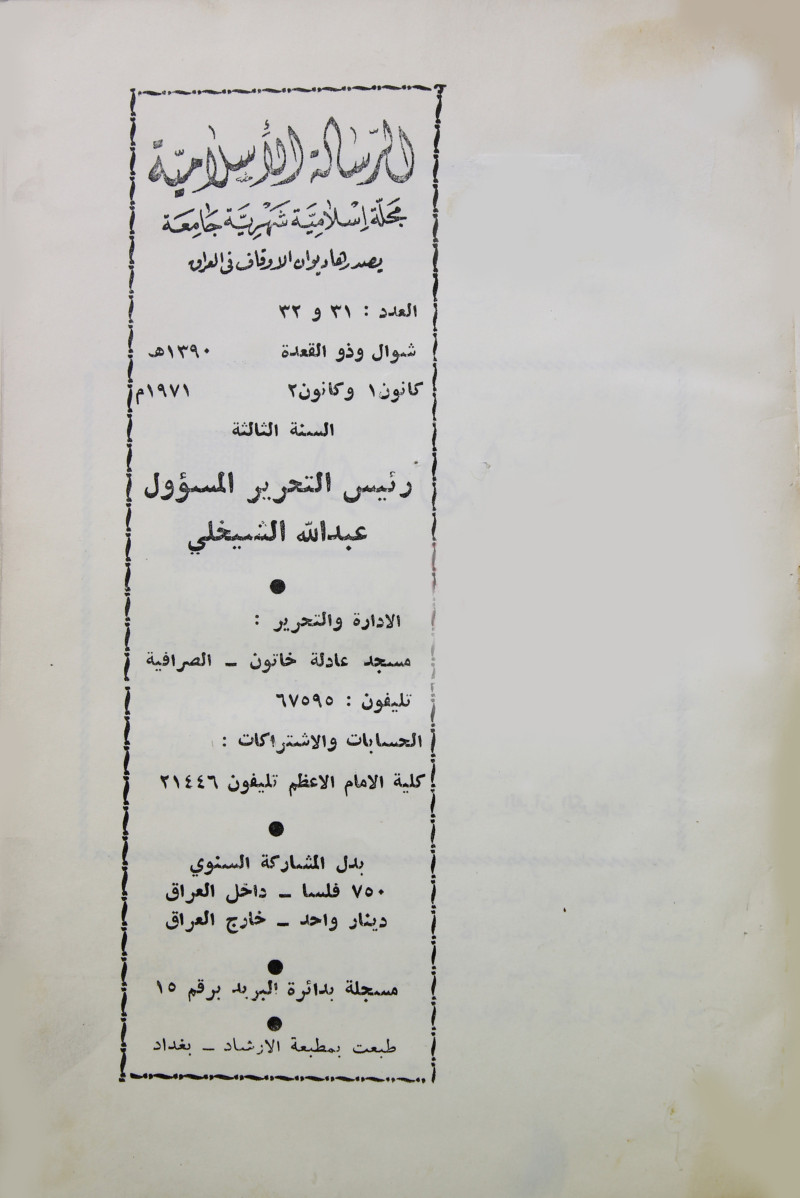 الرّسالة الأسلاميّة
مجَلّة إسْلاميَّة شَهْريَّة جَامِعَة
يصدرها ديوان الاوقاف في العراق
العدد : ٣١ و ٣٢
شوال وذو القعدة ١٣٩٠هـ
كانون١ وكانون٢ ١٩٧١م
السنة الثالثة
رئيس التحرير المسؤول
عبدالله الشيخلي
الادارة والتحرير :
مسجد عادلة خاتون ـ الصرافية
تليفون : ٦٧٥٩٥
الحسابات والاشتراكات :
كلية الامام الاعظم تليفون ٢١٤٤٦
بدل المشاركة السنوي
٧٥٠ فلسا ـ داخل العراق
دينار واحد ـ خارج العراق
مسجلة بدائرة البريد برقم ١٥
طبعت بمطبعة الارشاد ـ بغداد